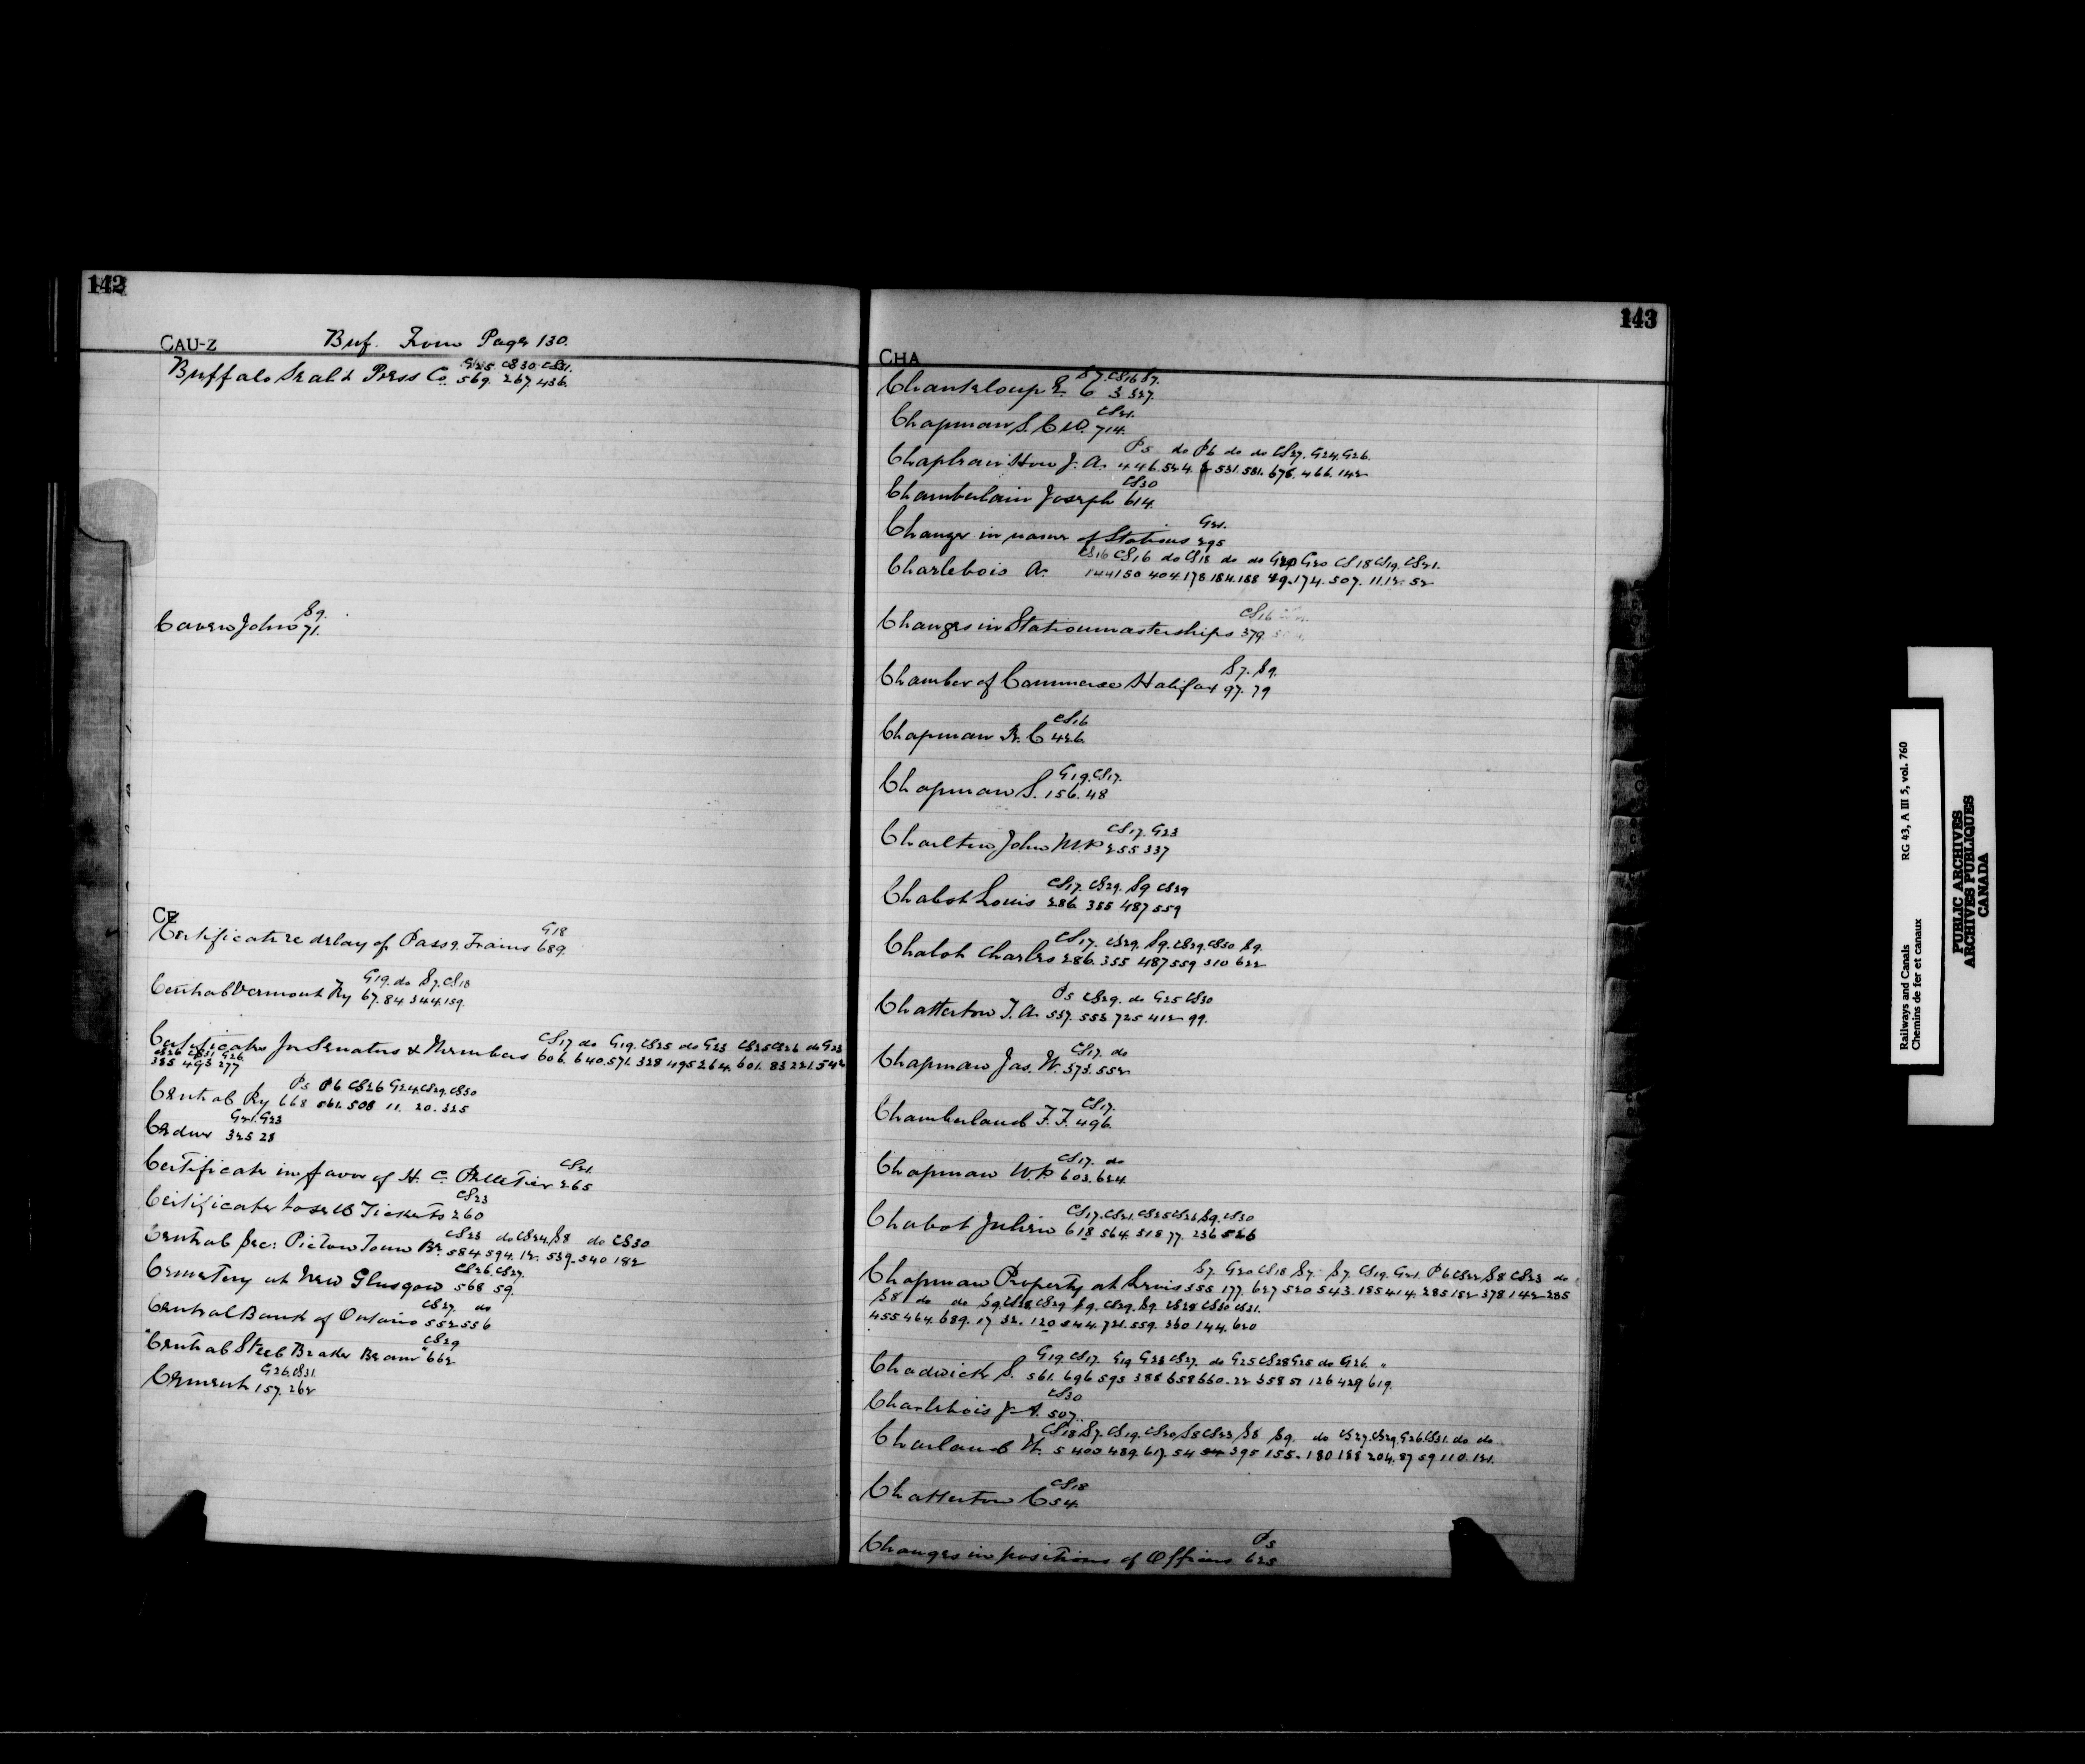 142
CAU-Z Buf. From Page 130.
G25 CS30 CS31.
Buffalo Seal & Press Co. 569. 267. 436.
S9.
Caven John 71.
CE
G18
Certificate re delay of Passr. Trains 689.
G19. do S7. CS18
Central Vermont Ry 67. 84. 344. 159.
CS17 do G19. CS25 do G23 CS25 CS26 do G23
Certificates for Senators & Members 606. 640. 571. 328 495 264. 601. 83 221. 542
CS26 CS31 G26
385 493 277
P5 P6 CS26 G24 CS29. CS30
Central Ry 668 561. 508 11. 20. 325
G21. G23
Cedar 325 28
CS21.
Certificate in favor of H. C. Pelletier 265
CS23
Certificates to sell Tickets 260
CS23 do CS24 S8 do CS30
Central Sec: Pictou Town Br. 584 594. 12. 539. 540 182
CS26. CS27.
Cemetery at New Glasgow 568 59.
CS27. do
Central Bank of Ontario 552 556
CS29
"Central Steel Brake Beam" 662
G26. CS31.
Cement 157. 262
143
CHA
S7. CS16 S7.
Chanteloup E. 6 3 327.
CS21.
Chapman S. C. W. 714.
P5 do P6 do do CS27. G24. G26.
Chapleau Hon J. A. 446. 524. 531. 581. 676. 466. 142
CS30
Chamberlain Joseph 614.
G21.
Change in name of Stations 295
CS16 CS16 do CS18 do do G20 G20 CS18 CS19. CS21.
Charlebois A. 144 150 404. 178 184. 188 29. 174. 507. 11. 12. 52
CS16
Changes in Stationmasterships 379.
S7. S9.
Chamber of Commerce Halifax 97. 79
CS16
Chapman R. C 426.
G19. CS17.
Chapman S. 156. 48
CS17. G23
Charlton John M.P. 255 337
CS17. CS29. S9 CS29
Chabot Louis 286. 355 487 559
CS17. CS29. S9. CS29. CS30 S9.
Chabot Charles 286. 355 487 559 310 622
P5 CS29. do G25 CS30
Chatterton T. A. 537. 553 725 412 99.
CS17. do
Chapman Jas. W. 373. 552
CS17.
Chamberland F. F. 496.
CS17. do
Chapman W. P. 603. 624.
CS17. CS21. CS25 CS26. S9. CS30
Chabot Julien 618 564. 518 77. 236 526
S7. G20 CS18 S7. S7. CS19. G21. P6 CS22 S8 CS23 do
Chapman Property at Levis 355 177. 627 520 543. 185 414. 285 182 378 142 285
S8 do do S9. CS28 CS29 S9. CS29. S9. CS28 CS30 CS31.
455 464. 689. 17 32. 120 544. 721. 559. 360 144. 620
G19 CS17. G19 G23 CS27. do G25 CS28 G25 do G26. "
Chadwick S. 561. 696 595 388 658 660. 22 358 51 126 429 619.
CS30
Charlebois J. A. 507.
CS18 S7. CS19. CS20 S8 CS23 S8 S9. do CS27. CS29. G26 CS31. do do
Charland W. 5 400 489. 617. 54 54 395 155. 180 188 204. 87 59 110. 121.
CS18
Chatterton C 54.
P5
Changes in positions of Officers 625
Railways and Canals RG 43, A III 5, vol. 760
Chemins de fer et canaux
PUBLIC ARCHIVES
ARCHIVES PUBLIQUES
CANADA